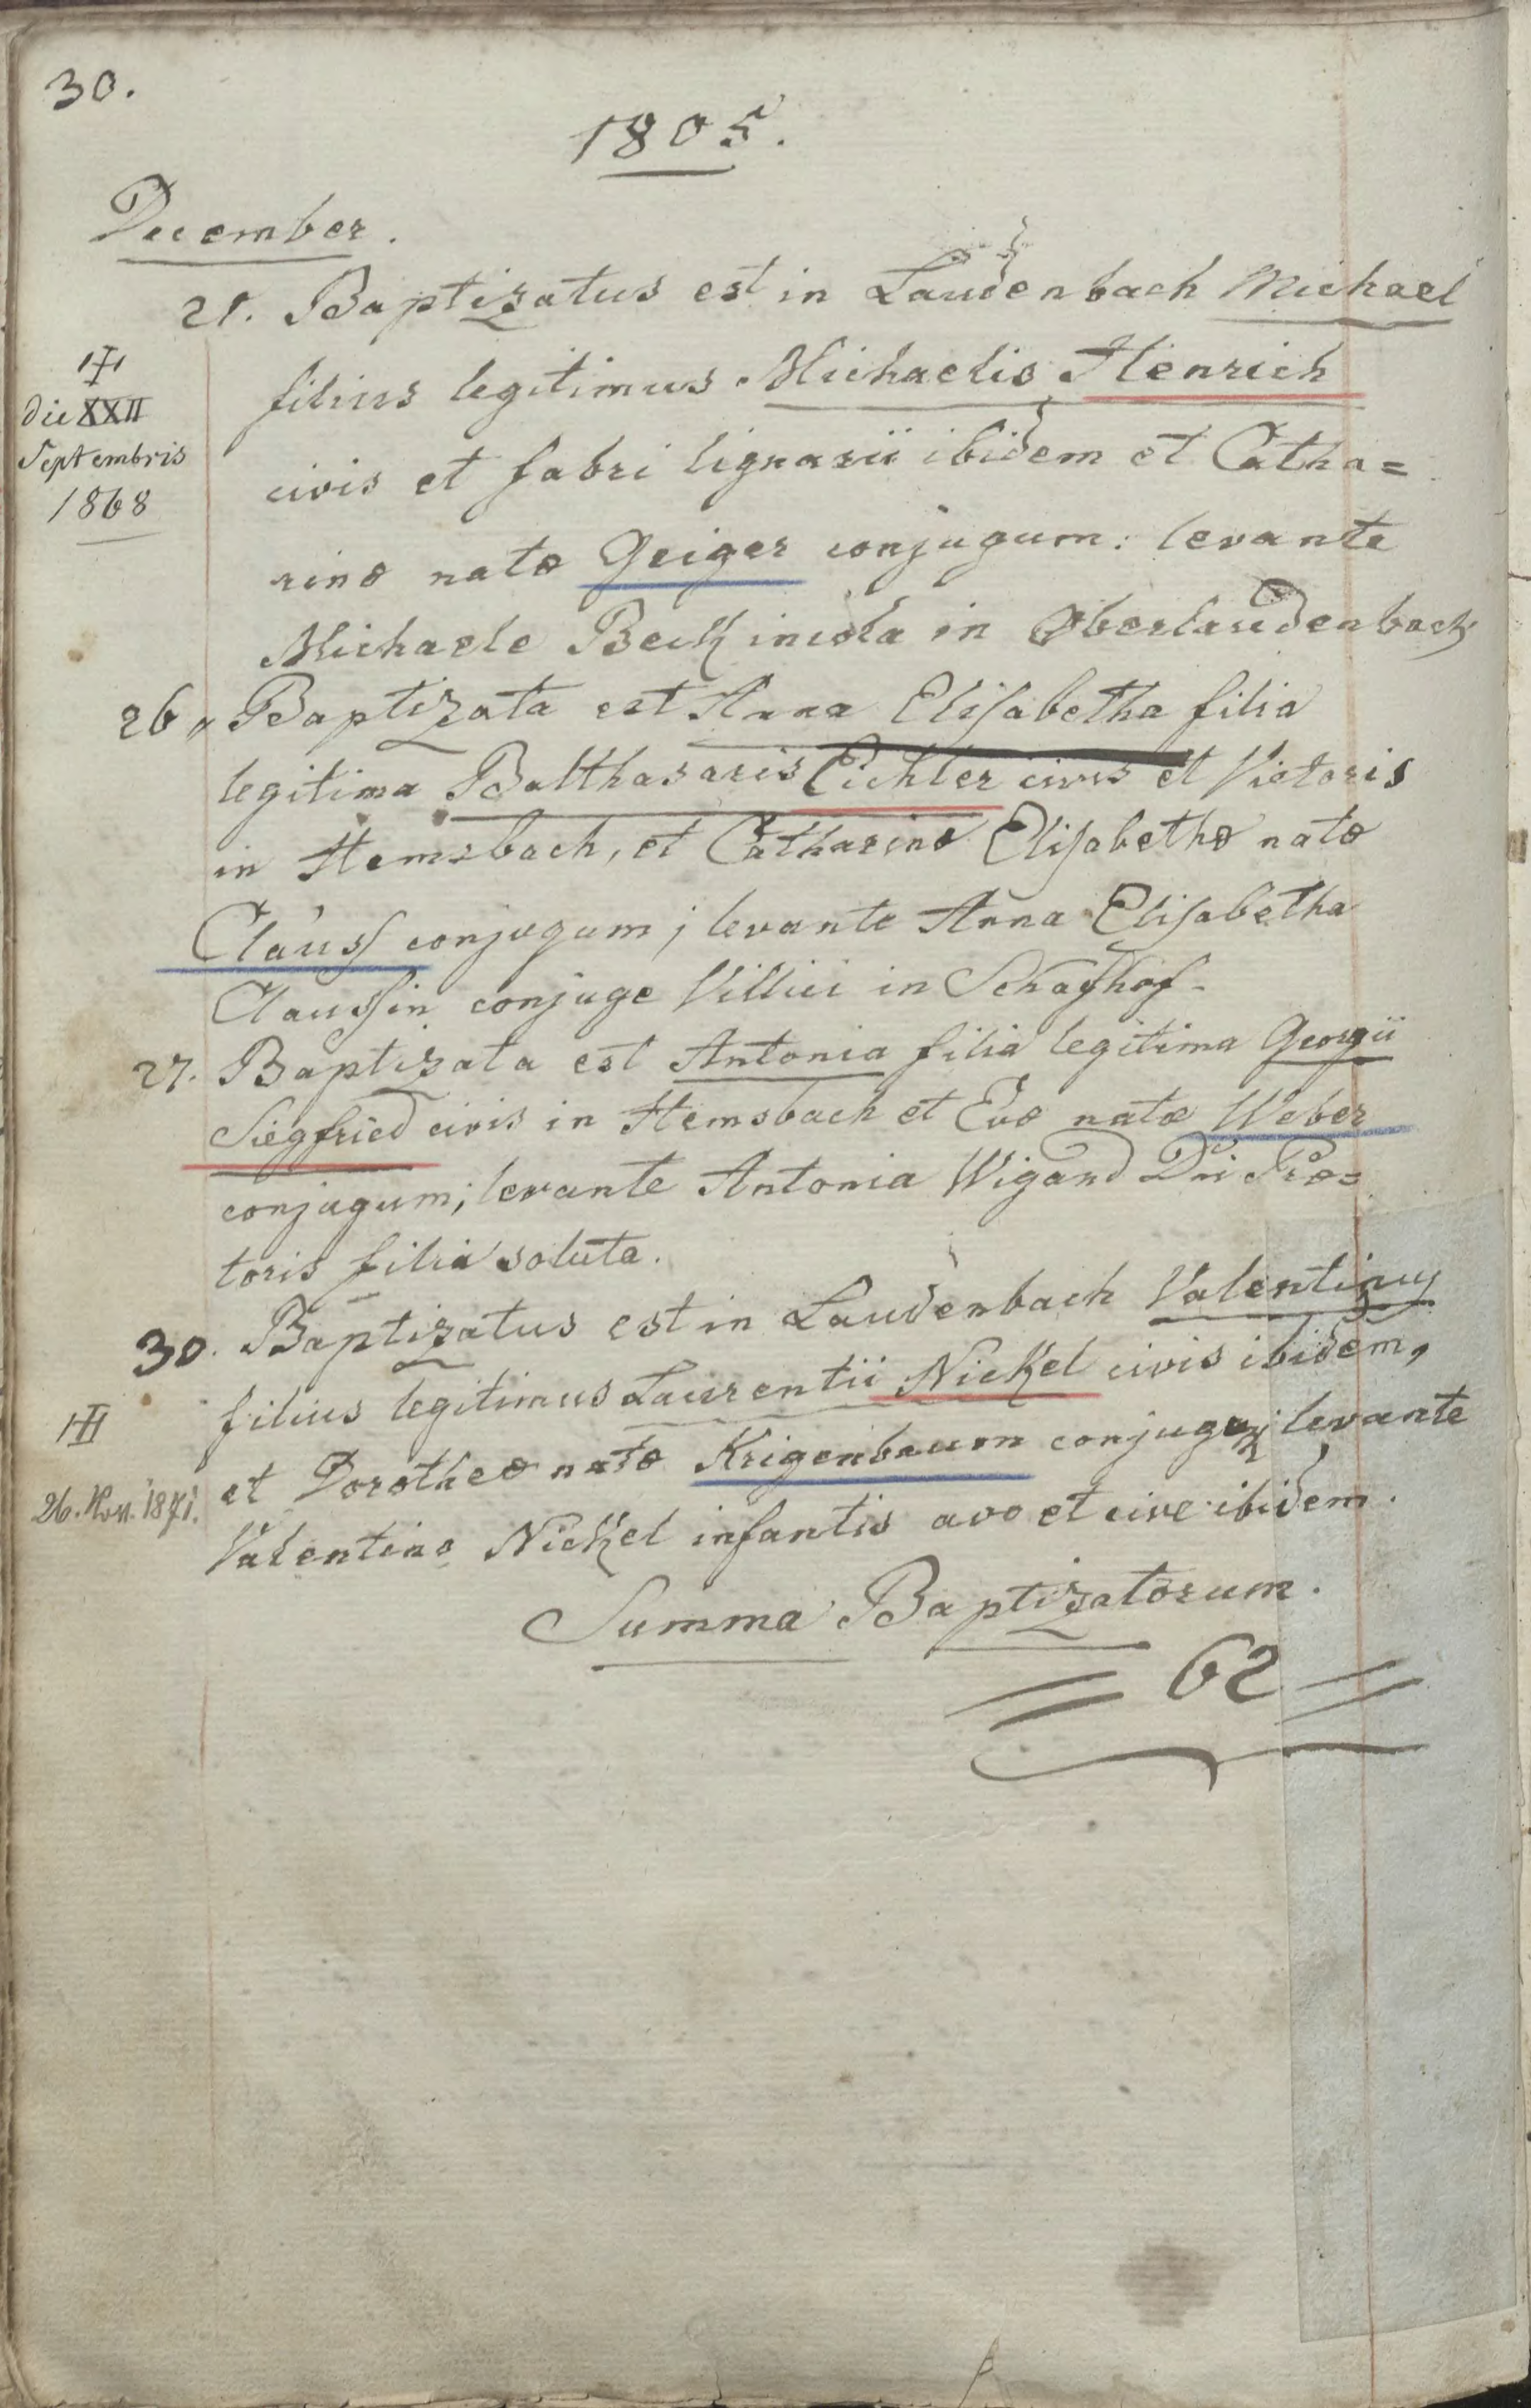 30.
1805.
December.
21. Baptizatus est in Laudenbach Michael
filius legitimus Michaelis Henrich
civis et fabri lignarii ibidem et Catha=
rinæ natæ Geiger conjugum: levante
Michaele Beck incola in Oberlaudenbach
ⵐ
die XXII
Septembris
1868
26. Baptizata est Anna Elisabetha filia
legitima Balthasaris Eichler civis et Vietoris
in Hemsbach, et Catharinæ Elisabethæ natæ
Clauss conjugum; levante Anna Elisabetha
Claussin conjuge Villici in Schafhof.
27. Baptizata est Antonia filia legitima Georgii
Siegfried civis in Hemsbach et Evæ natæ Weber
conjugum; levante Antonia Wigand Dni Præ=
toris filia soluta.
30. Baptizatus est in Laudenbach Valentinus
filius legitimus Laurentii Nickel civis ibidem,
et Dorotheæ natæ Krigenbaum conjugum; levante
Valentino Nickel infantis avo et cive ibidem.
26. Nov. 1871.
Summa Baptizatorum.
= 62 =